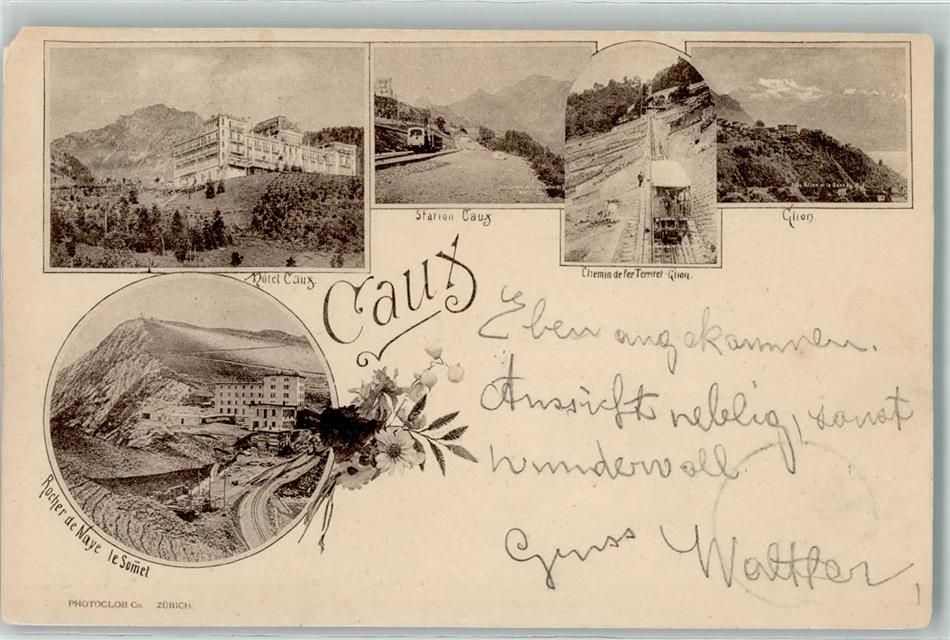 Station Caux
Glion
Hôtel Caux.
Chemin de fer Territet-Glion.
Caux
Eben angekommen.
Aussicht neblig, sonst
wundervoll.
Gruss Walther
Rocher de Naye le Som̄et
PHOTOCLOB Co. ZÜRICH.